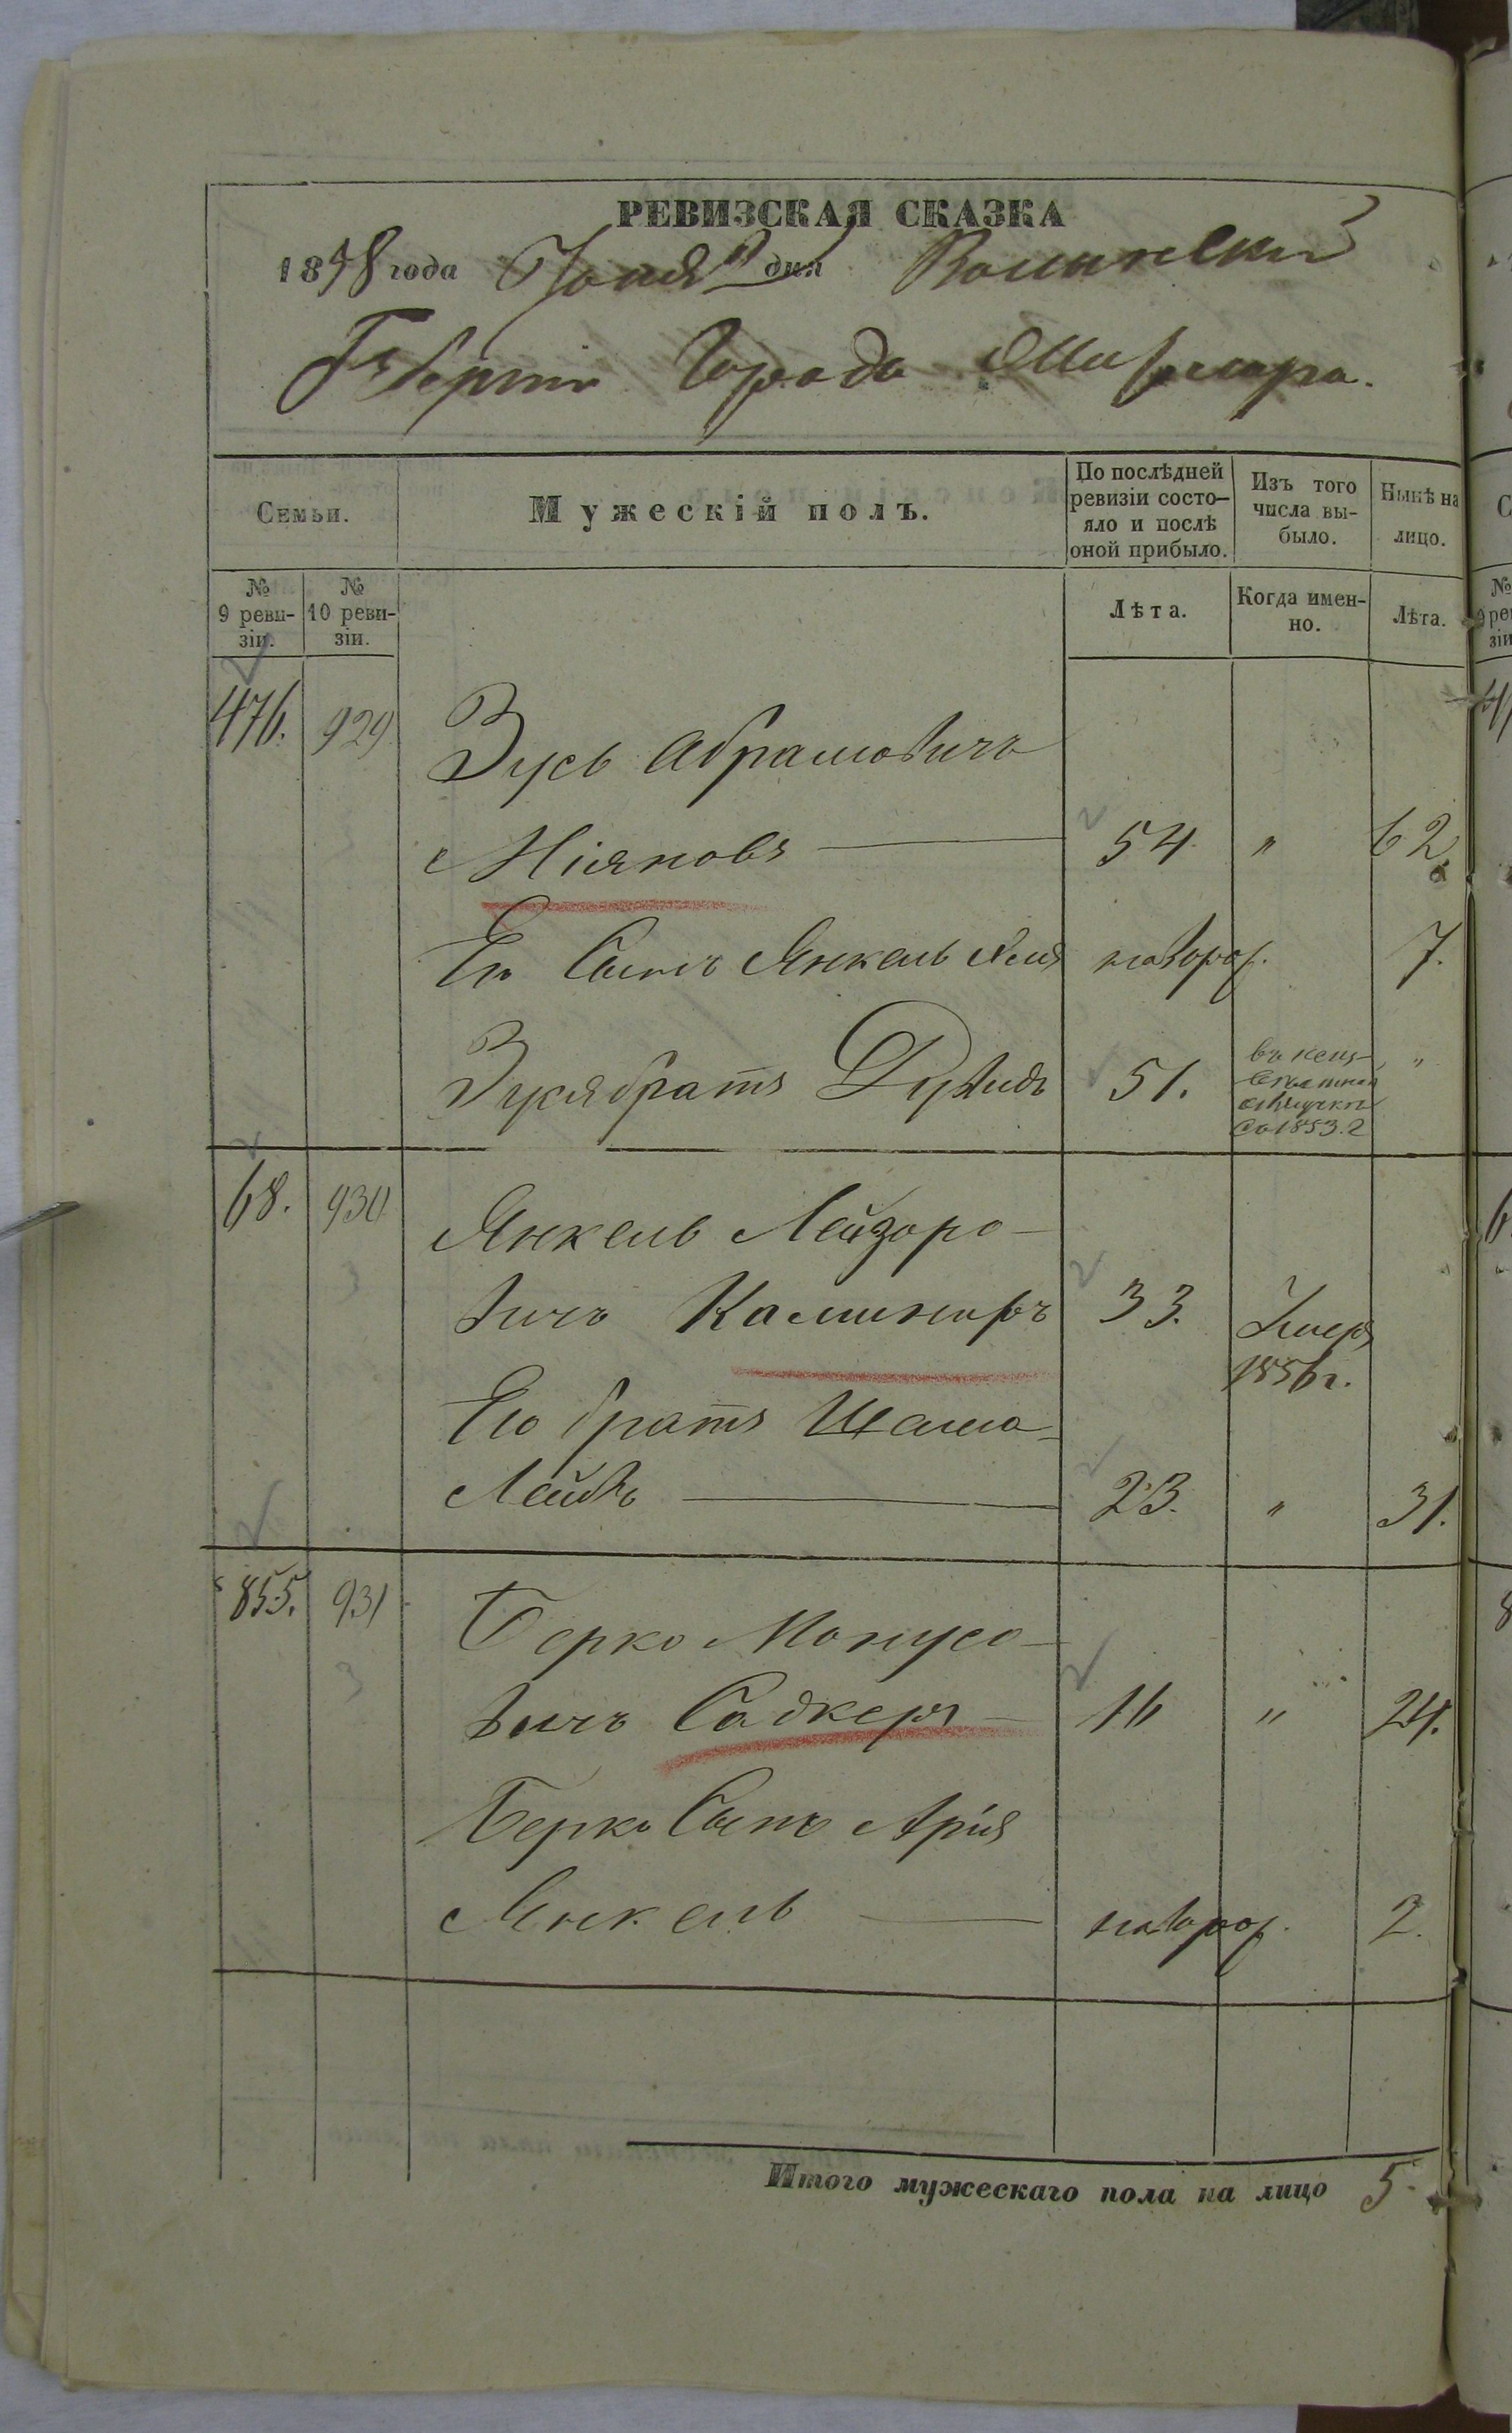 РЕВИЗСКАЯ СКАЗКА
1858 года Іюня дня Волынской
Губерніи Города Житомира.
Семьи.
Мужескій полъ.
По послѣдней ревизіи состо-
яло и послѣ оной прибыло.
Изъ того числа вы-
было.
Нынѣ на лицо.
№ 9 реви-
зіи.
№ 10 реви-
зіи.
Лѣта.
Когда имен-
но.
Лѣта.
476. 929 Зусь Абрамовичъ
54. " 62.
Его Сынъ Янкель новорож. 7.
Зуся братъ Дувидъ 51. въ
отлучкѣ
съ 1853. г "
68. 930 Янкель Лейзоро-
вичъ 33. Умеръ
1856 г.
Его братъ Шама
Лейбъ 23. " 31.
855. 931 Берко Монусо-
вичъ Садкеръ 16 " 24.
Берко Сынъ Арія
Янкель новорож. 2.
Итого мужескаго пола на лицо 5.